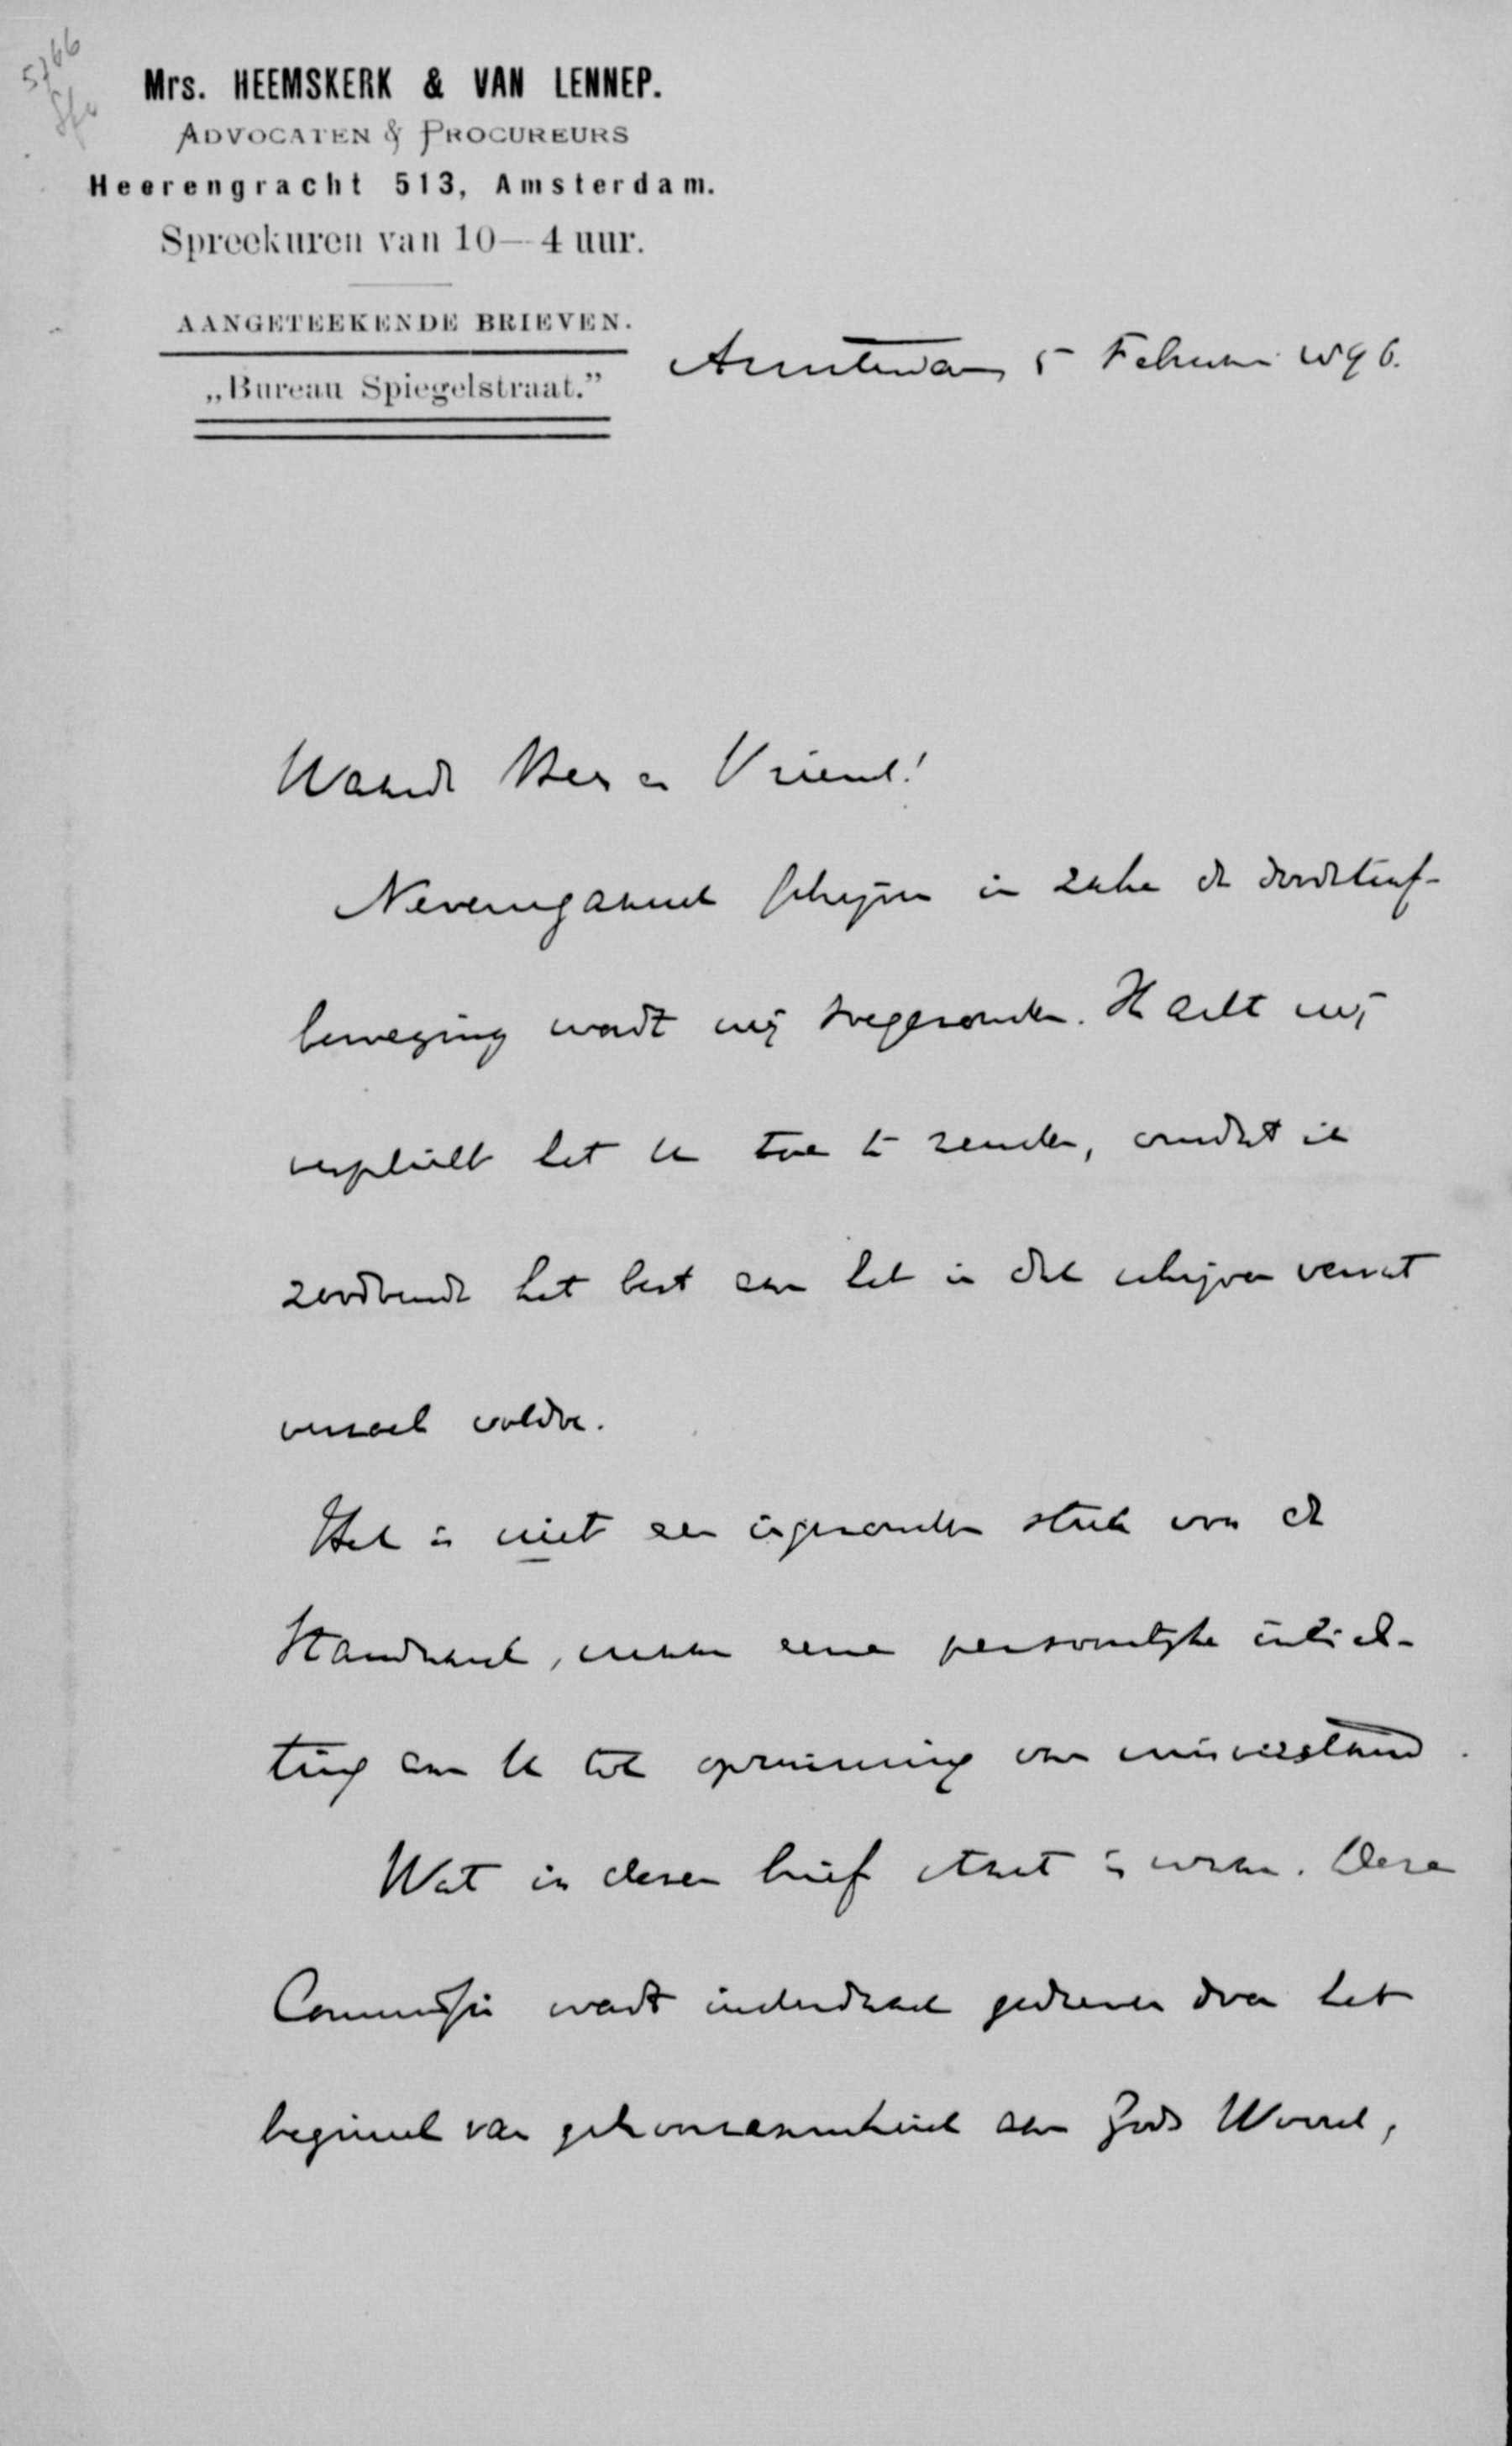 5766
Mrs. HEEMSKERK & VAN LENNEP.
ADVOCATEN & PROCUREURS
Heerengracht 513, Amsterdam.
Spreekuren van 10—4 uur.
AANGETEEKENDE BRIEVEN.
„Bureau Spiegelstraat.”
Amsterdam 5 Februari 1896.
Waarde Heer en Vriend!
Nevensgaand schrijven in zake de doodstraf-
beweging wordt mij toegezonden. Ik acht mij
verplicht het U toe te zenden, omdat ik
zoodoende het best aan het in dat schrijven vervat
verzoek voldoe.
Het is niet een ingezonden stuk voor de
Standaard, maar eene persoonlijke inlich-
ting aan U tot opruiming van misverstand.
Wat in dezen brief staat is waar. Deze
Commissie wordt inderdaad gedreven door het
beginsel van gehoorzaamheid aan Gods Woord,